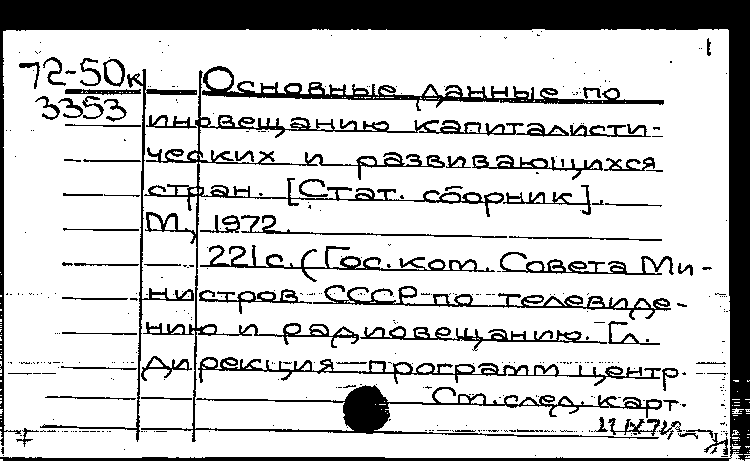 1
72-50к Основные данные по
3353
иновещанию капиталисти-
ческих и развивающихся
стран. [Стат. сборник].
М., 1972.
221 с. (Гос. ком. Совета Ми-
нистров СССР по телевиде-
нию и радиовещанию. Гл.
дирекция программ центр.
См. след. карт.